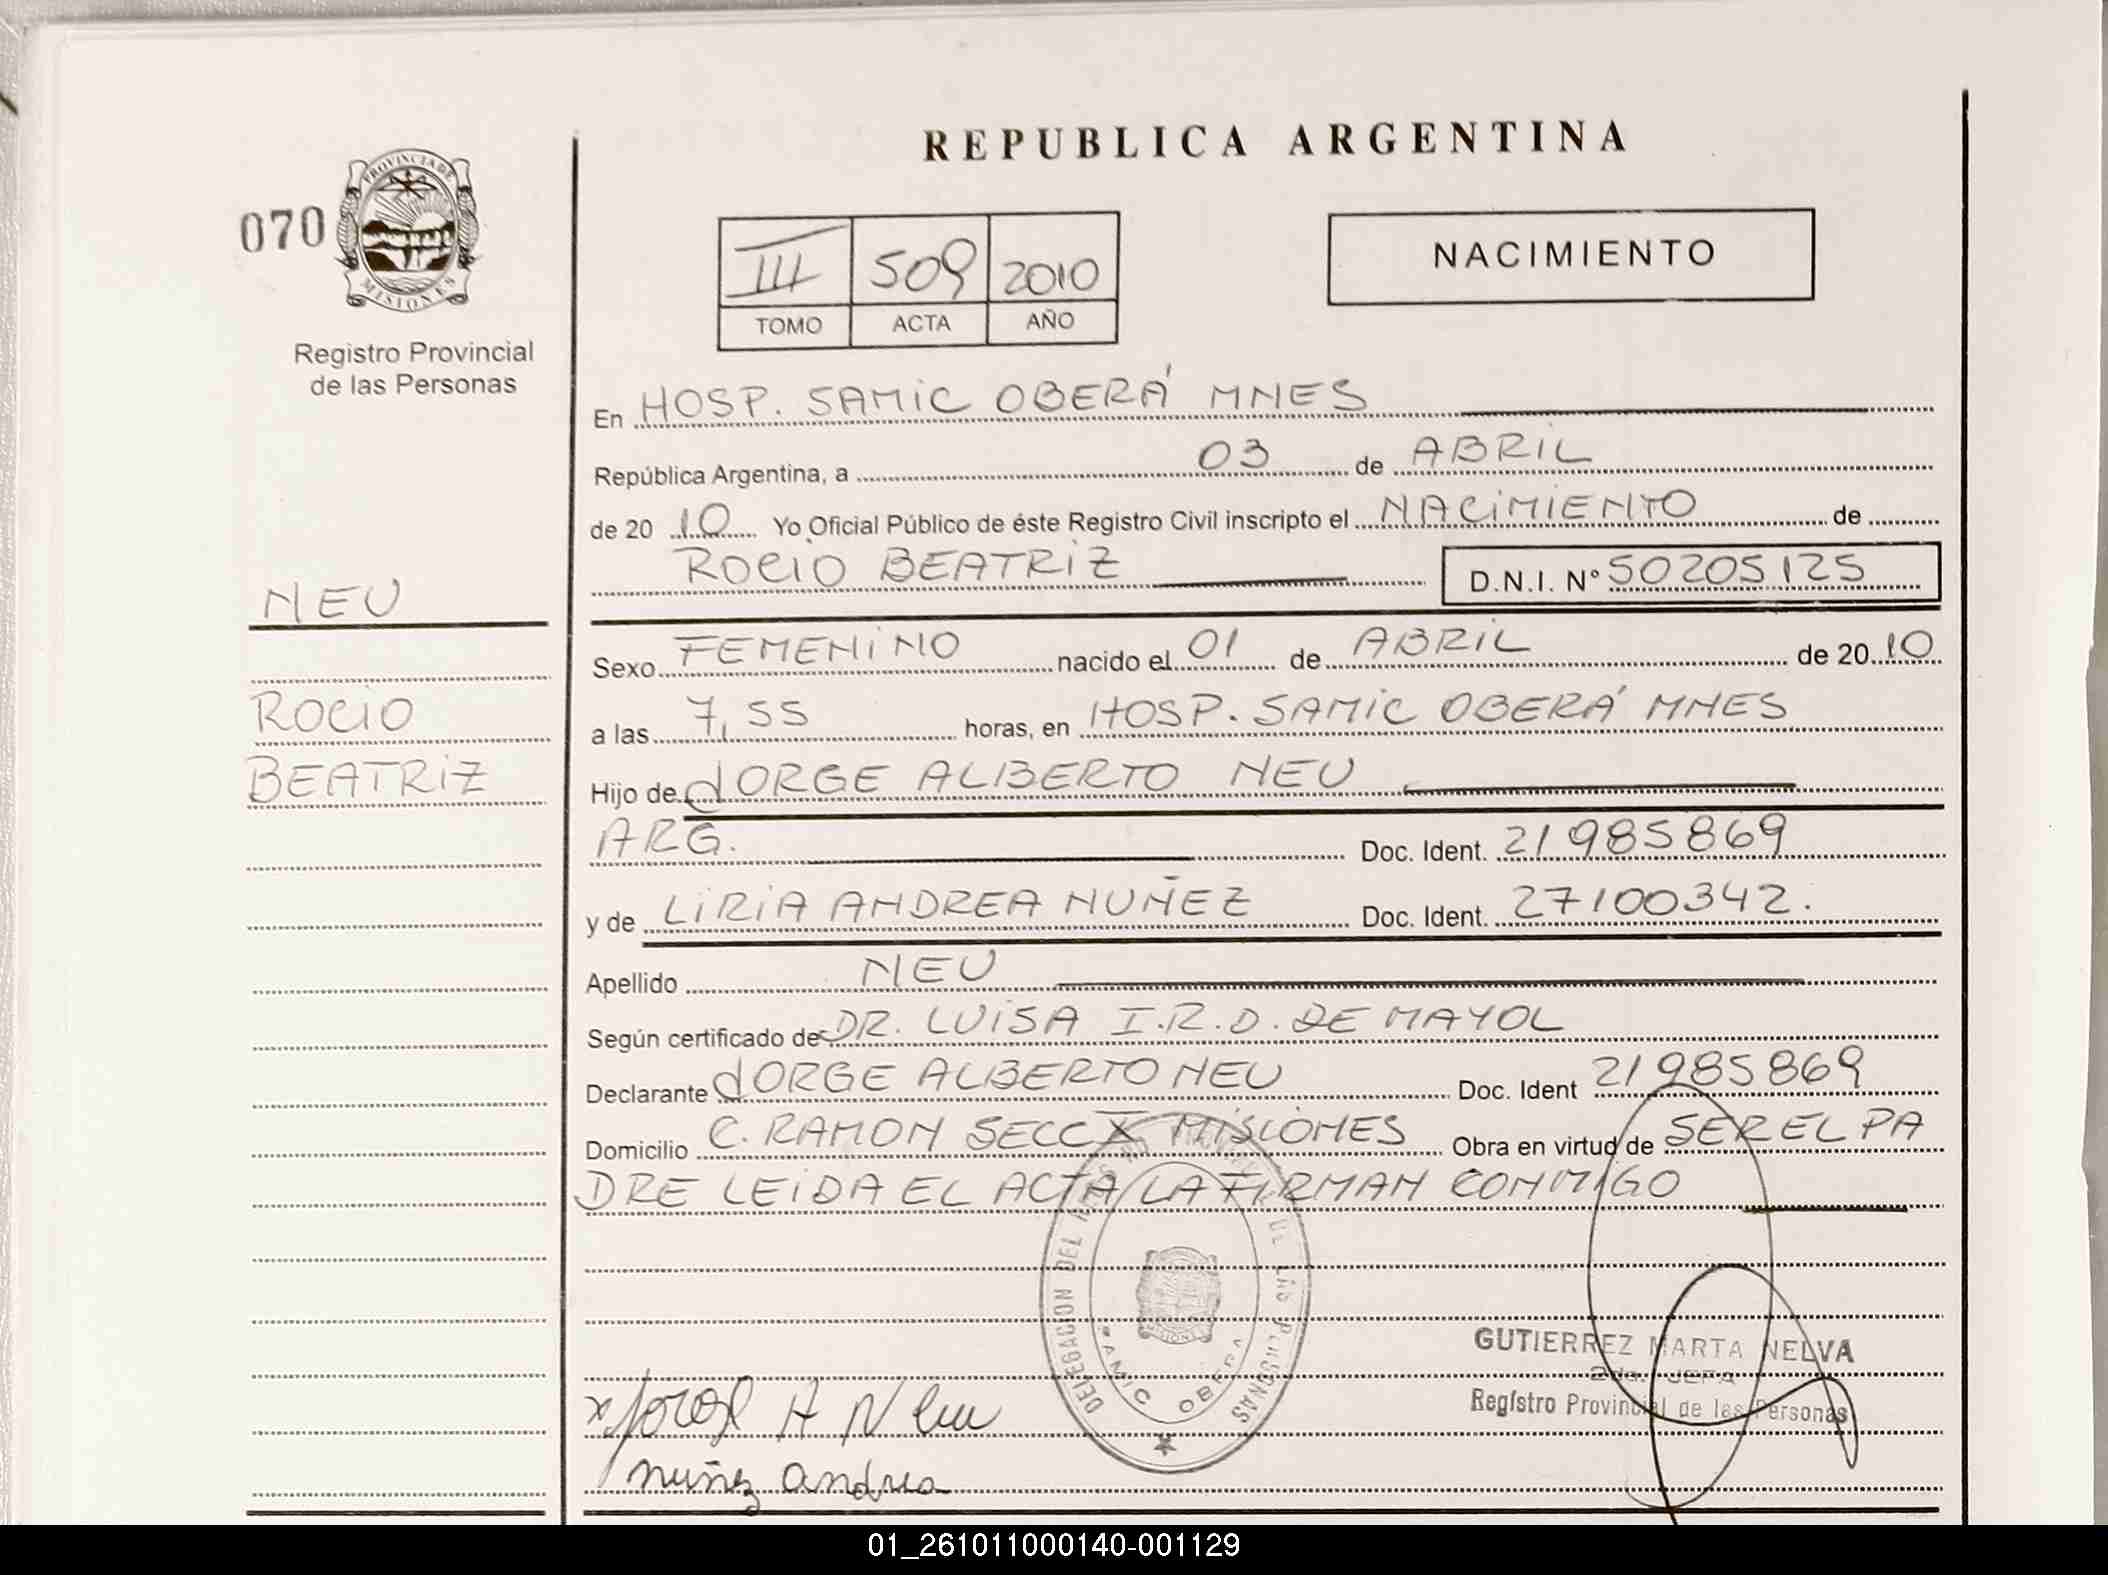 REPUBLICA ARGENTINA
070
PROVINCIA DE
MISIONES
Registro Provincial
de las Personas
III 509 2010
TOMO ACTA AÑO
NACIMIENTO
NEU
ROCIO
BEATRIZ
En HOSP. SAMIC OBERÁ MNES
República Argentina, a 03 de ABRIL
de 20 10 Yo Oficial Público de éste Registro Civil inscripto el NACIMIENTO de
ROCIO BEATRIZ D.N.I. N° 50205125
Sexo FEMENINO nacido el 01 de ABRIL de 20 10
a las 7,55 horas, en HOSP. SAMIC OBERÁ MNES
Hijo de JORGE ALBERTO NEU
ARG. Doc. Ident. 21985869
y de LIRIA ANDREA NUÑEZ Doc. Ident. 27100342.
Apellido NEU
Según certificado de DR. LUISA I.R.D. DE MAYOL
Declarante JORGE ALBERTO NEU Doc. Ident 21985869
Domicilio C. RAMON SECC X MISIONES Obra en virtud de SER EL PA
DRE LEIDA EL ACTA LA FIRMAN CONMIGO
DELEGACION DEL DE LAS PERSONAS
SAMIC OBERA
GUTIERREZ MARTA NELVA
2da. JEFA
Registro Provincial de las Personas
x Jorge A Neu
nuñez andrea
01_261011000140-001129